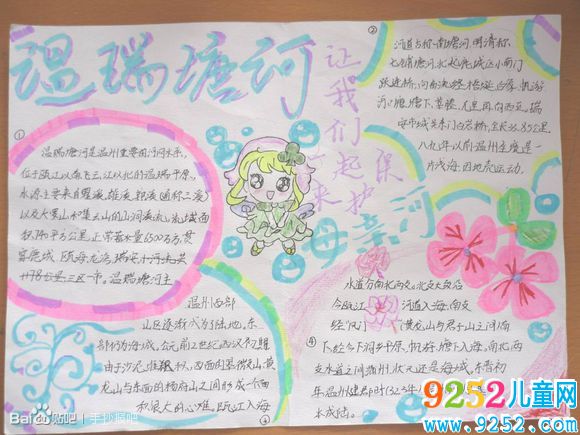 温瑞塘河
让我们一起来保护
母亲河
①
温瑞塘河是温州重要的河水系,
位于瓯江以南飞云江以北的温瑞平原,
水源主要来自瞿溪、雄溪、郭溪(通称三溪)
以及大罗山和集云山的山涧溪流,流域面
积740平方公里,正常蓄水量6500万方,贯
穿鹿城、瓯海龙湾、瑞安
温瑞塘河主
②
河道古称南塘河,明清称
七铺塘河,北起鹿城区小南门
跃进桥,向南流经梧埏、白象、帆游
河口塘、塘下、莘塍、九里、
安市城关东门白岩桥,全长33.85公里
八九年以前温州全境是一
片浅海,因地壳运动,
温州西部
山区逐渐成为了陆地,东
部仍为海域,公元前2世纪西汉初期
由于泥沙堆积,西面
龙山与东面的杨府山之间形成一个面
积很大的
瓯江入海
③
水道分南北两支,北支大致沿
今瓯江河道入海,南支
经
黄龙山与君子山之间南
④
下经今下河乡平原、帆游、塘下入海,南北两
支水道之间
还是海域,东晋初
年温州建郡时(323年)
水成陆。
Bai du 贴吧 | 手抄报吧
9252儿童网
www.9252.com